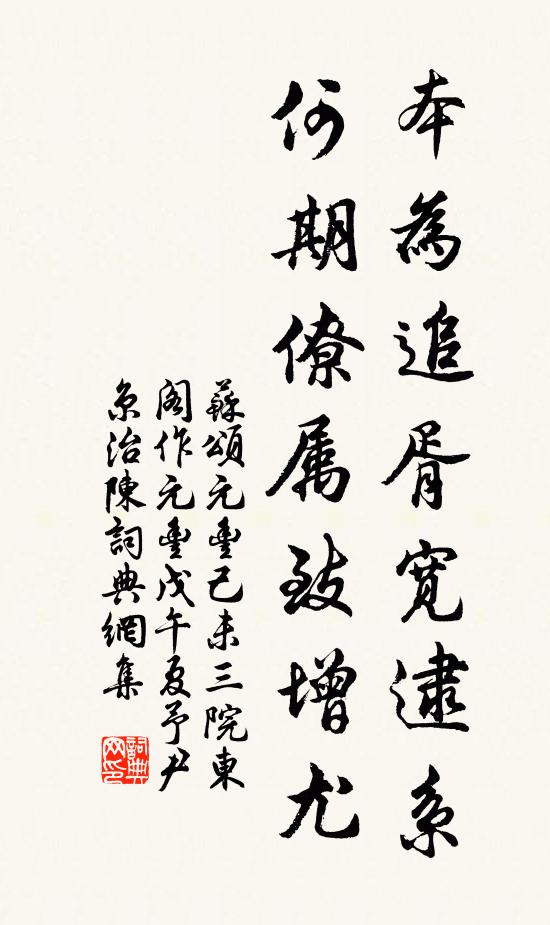 本為追胥寬逮系
何期僚属致增尤
蘇頌元豊己未三院東
阁作元豊戊午夏予尹
京治陳詞典網集
詞典网印